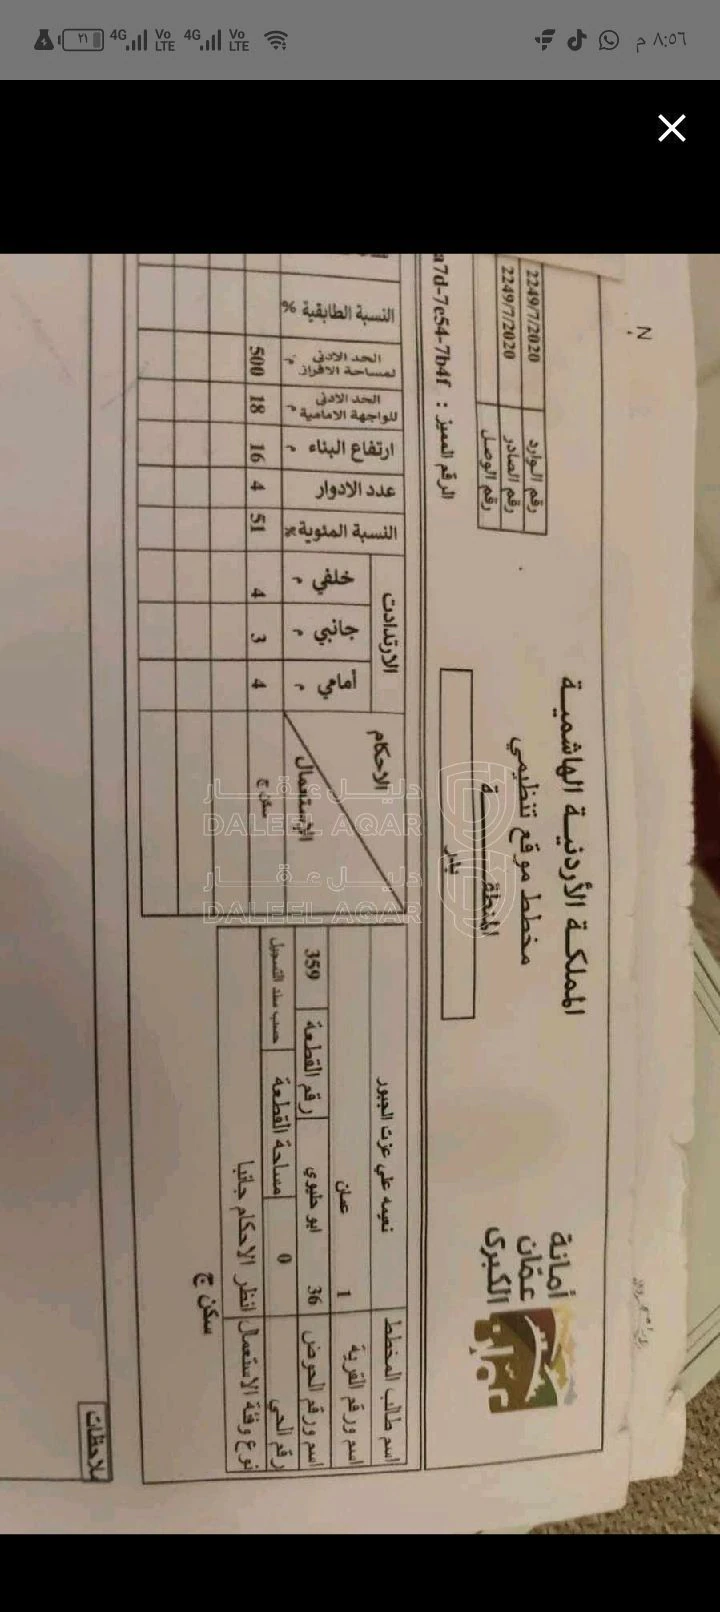 ٨:٥٦ م
4G
Vo LTE
4G
Vo LTE
٢١
N
المملكة الأردنية الهاشمية
مخطط موقع تنظيمي
المنطقة
بدر
أمانة
عمّان
الكبرى
رقم الوارد 2249/7/2020
رقم الصادر 2249/7/2020
رقم الوصل
الرقم المميز : a7d-7e54-7b4f
اسم طالب المخطط نعيمه علي عزت الجبور
اسم ورقم القرية 1 عمان
اسم ورقم الحوض 36 ابو حليوي رقم القطعة 359
رقم الحي 0 مساحة القطعة حسب سند التسجيل
نوع وفئة الاستعمال انظر الاحكام جانبا
سكن ج
الاحكام
الإستعمال
الارتدادت
أمامي م
جانبي م
خلفي م
النسبة المئوية%
عدد الادوار
ارتفاع البناء م
الحد الادنى للواجهة الامامية م
الحد الادنى لمساحة الافراز م
النسبة الطابقية %
سكن ج 4 3 4 51 4 16 18 500
ملاحظات
دليل عقار
DALEEL AQAR
دليل عقار
DALEEL AQAR